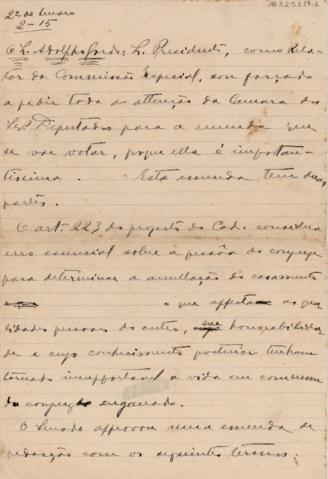 2ª do Senado
2-15
O Sr. Adolpho Gordo: Sr. Presidente, como Rela-
tor da Commissão Especial, sou forçado
a pedir toda a attenção da Camara dos
Srs. Deputados para a emenda que
se vae votar, porque ella é importan-
tissima. Esta emenda tem duas
partes.
O art. 223 do projecto do Cod. considera
erro essencial sobre a pessôa do conjuge
para determinar a annullação do casamento
o que affecta as qua-
lidades pessoaes do outro, sua honorabilida-
de e cujo conhecimento posterior tenham
tornado insupportavel a vida em commum
do conjuge enganado.
O Senado approvou uma emenda de
redacção com os seguintes termos: